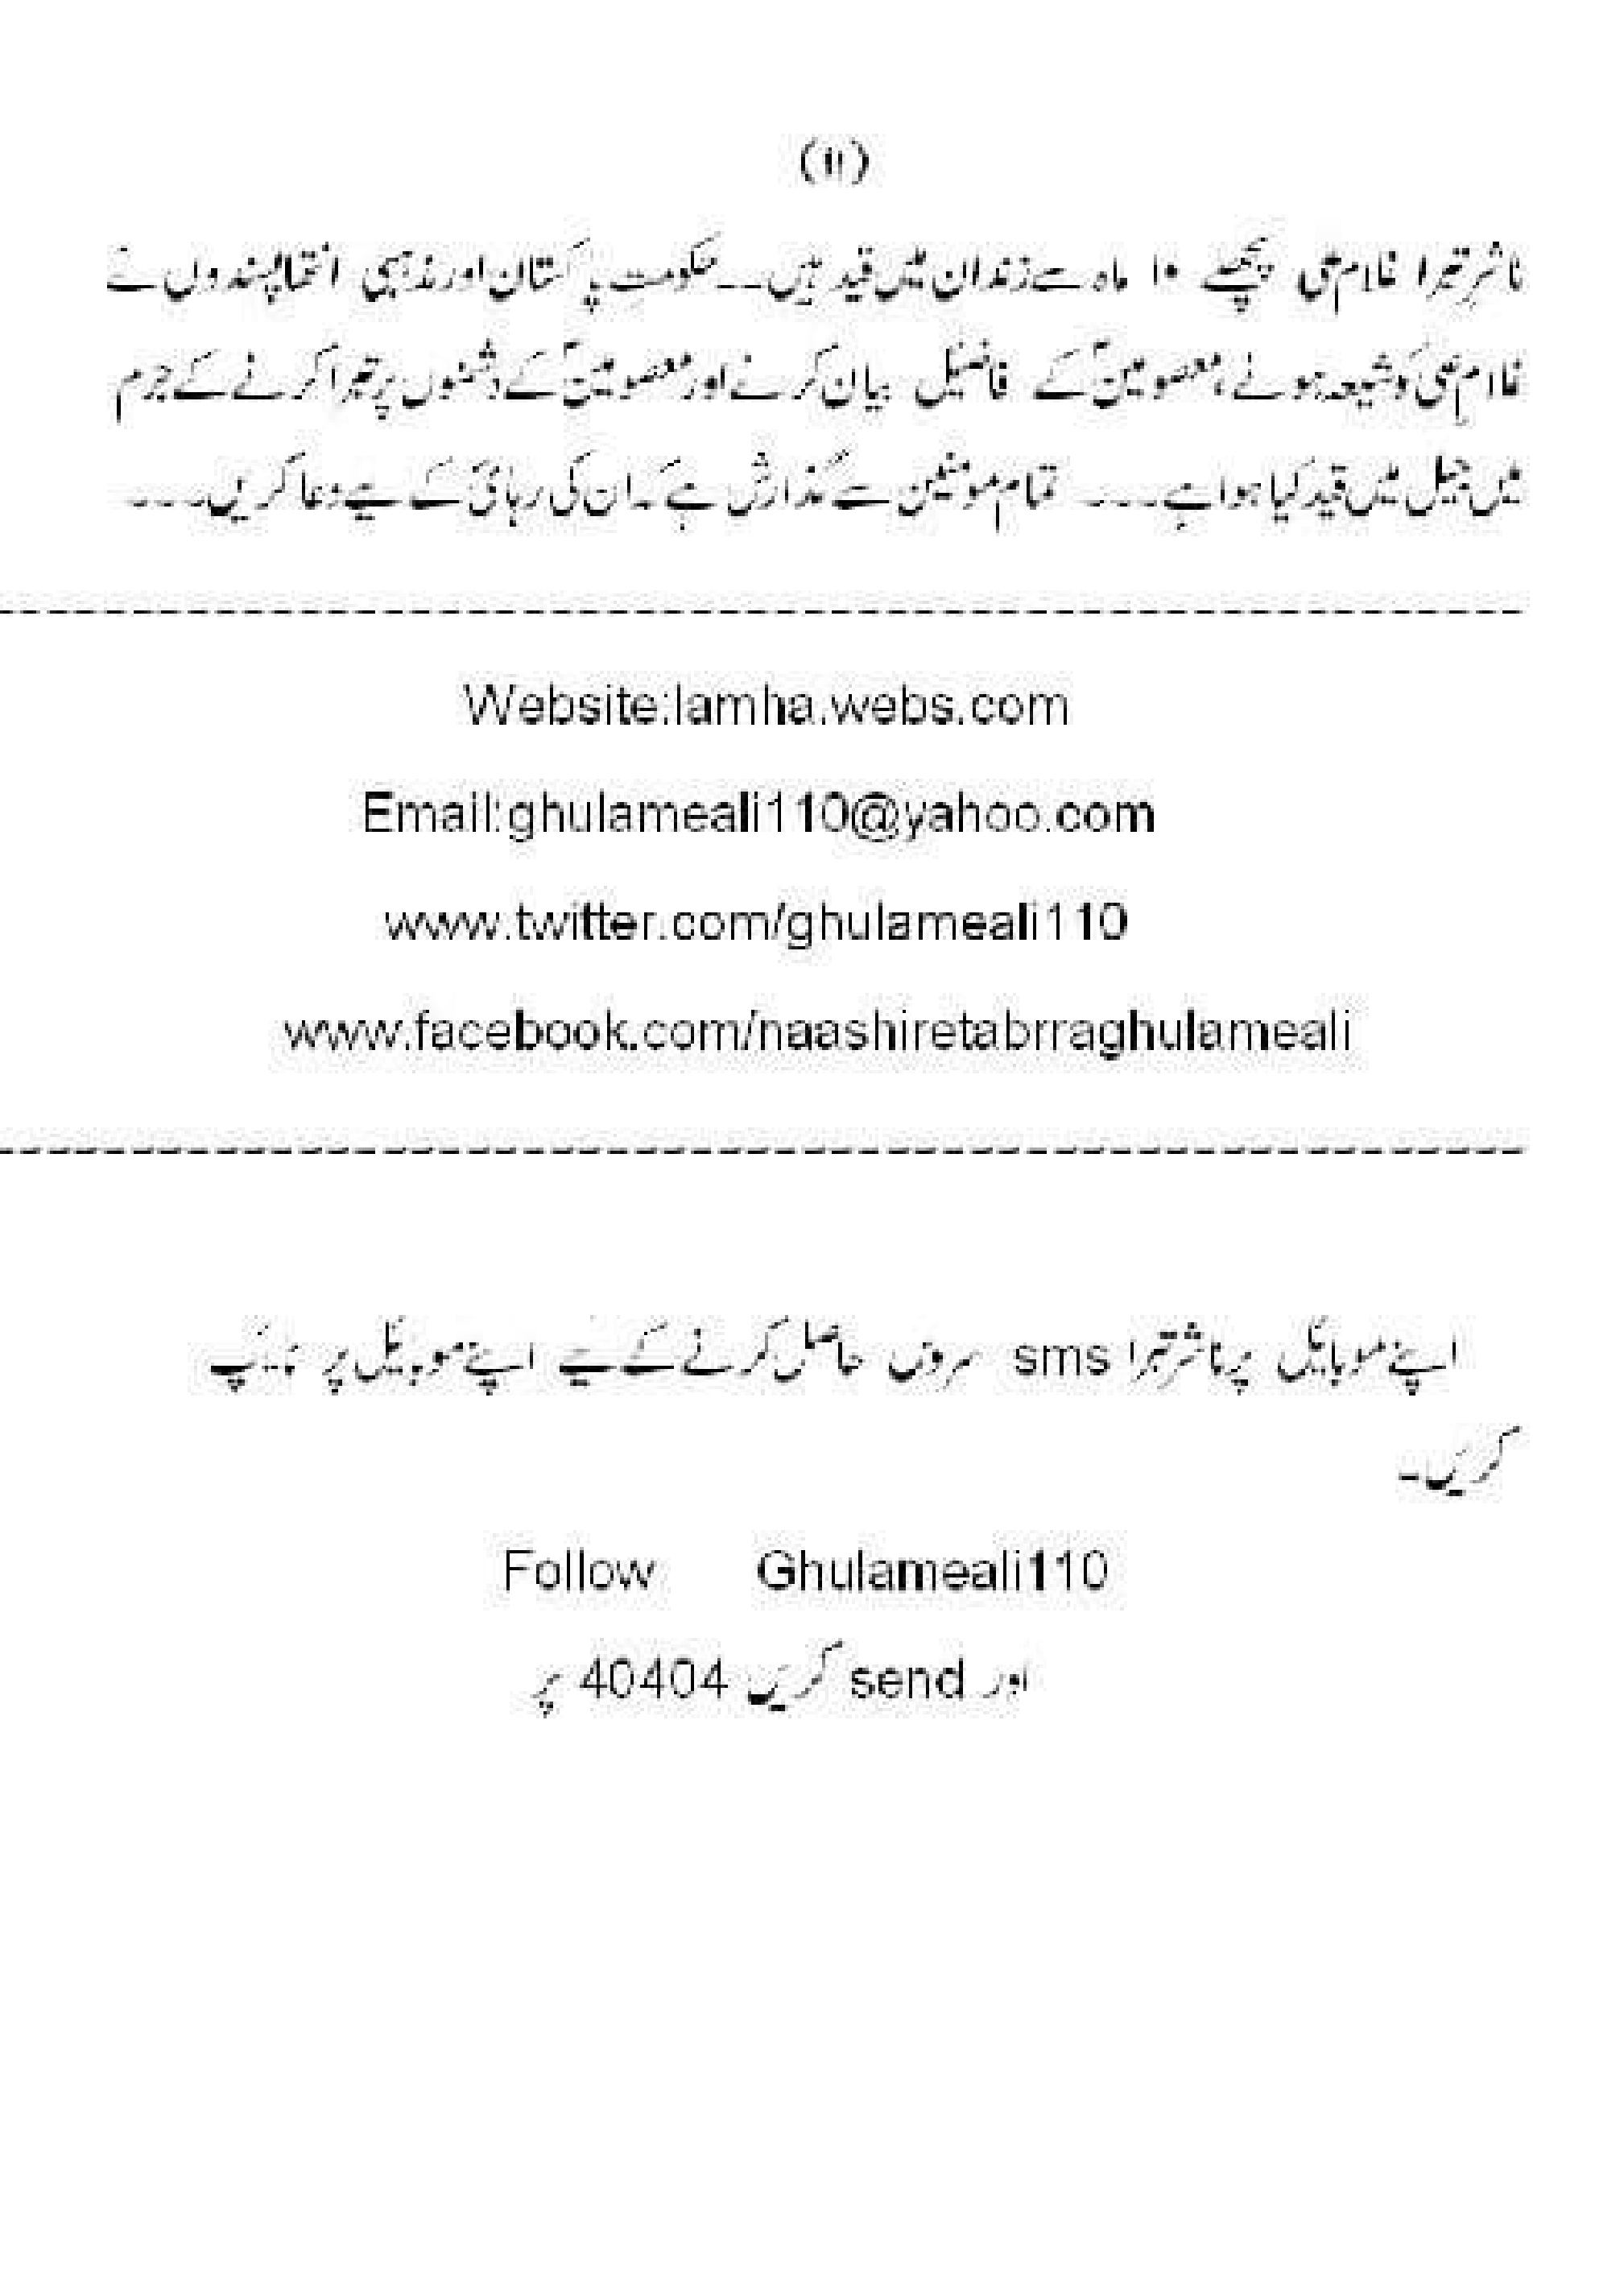 (۱۱)
ناشرِ تبرا غلامِ علی پچھلے ۱۰ ماہ سے زندان میں قید ہیں۔۔حکومتِ پاکستان اور مذہبی انتہاپسندوں نے
غلامِ علی کو شیعہ ہونے، معصومینؑ کے فضائیل بیان کرنے اور معصومینؑ کے دشمنوں پر تبرا کرنے کے جرم
میں جیل میں قید کیا ہوا ہے۔۔۔۔ تمام مومنین سے گذارش ہے کہ ان کی رہائی کے لیے دعا کریں۔۔۔۔
Website:lamha.webs.com
Email:ghulameali110@yahoo.com
www.twitter.com/ghulameali110
www.facebook.com/naashiretabrraghulameali
اپنے موبائیل پر ناشرِ تبرا sms سروس حاصل کرنے کے لیے اپنے موبائیل پر ٹایئپ
کریں۔
Follow Ghulameali110
اور send کریں 40404 پر